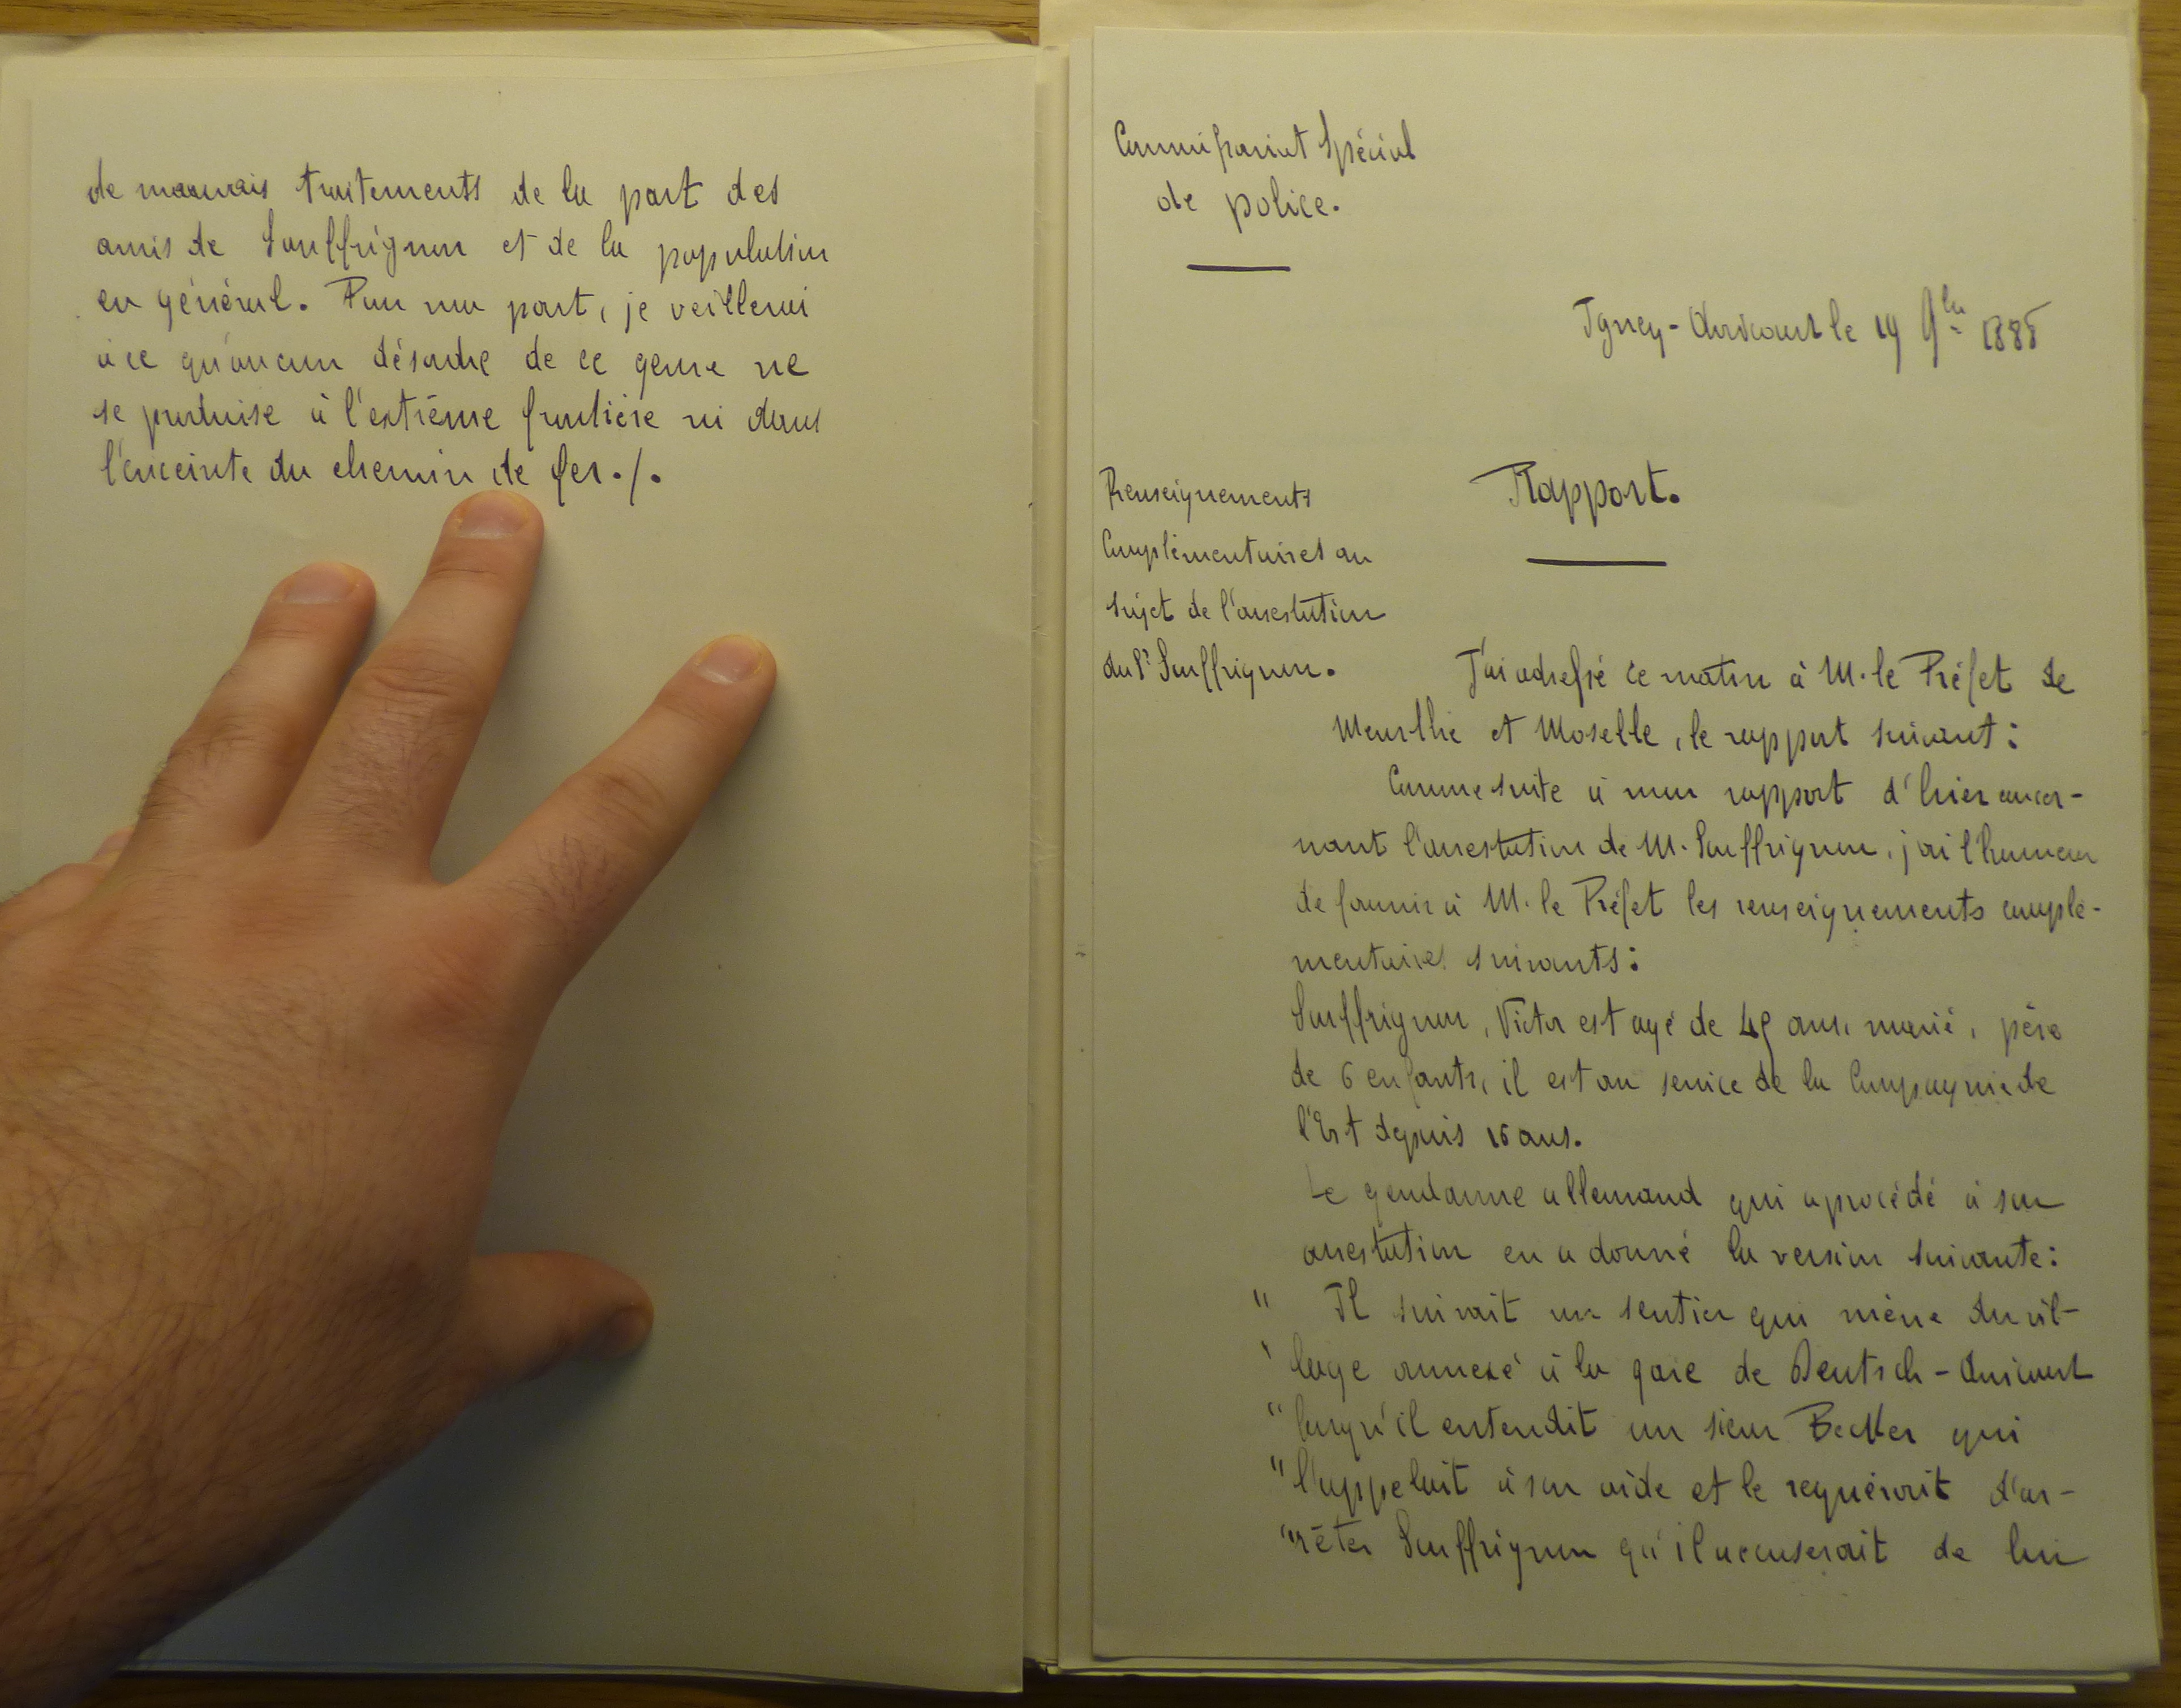 de mauvais traitements de la part des
amis de Souffrignon et de la population
en général. Pour ma part, je veillerai
à ce qu'aucun désordre de ce genre ne
se produise à l'extrême frontière ni dans
l'enceinte du chemin de fer./.
Commissariat Spécial
de police.
Igney-Avricourt le 19 9bre 1888
Renseignements
Complémentaires au
sujet de l'arrestation
du Sr Souffrignon.
Rapport.
J'ai adressé ce matin à M. le Préfet de
Meurthe et Moselle, le rapport suivant:
Comme suite à mon rapport d'hier concer-
nant l'arrestation de M. Souffrignon, j'ai l'honneur
de fournir à M. le Préfet les renseignements complé-
mentaires suivants:
Souffrignon, Victor est agé de 49 ans, marié, père
de 6 enfants, il est au service de la Compagnie de
l'Est depuis 15 ans.
Le gendarme allemand qui a procédé à son
arrestation en a donné la version suivante:
" Il suivait un sentier qui mène du vil-
" lage annexé à la gare de Deutsch-Avricourt
" lorsqu'il entendit un sieur Becker qui
" l'appelait à son aide et le requérait d'ar-
" rêter Souffrignon qu'il accuserait de lui